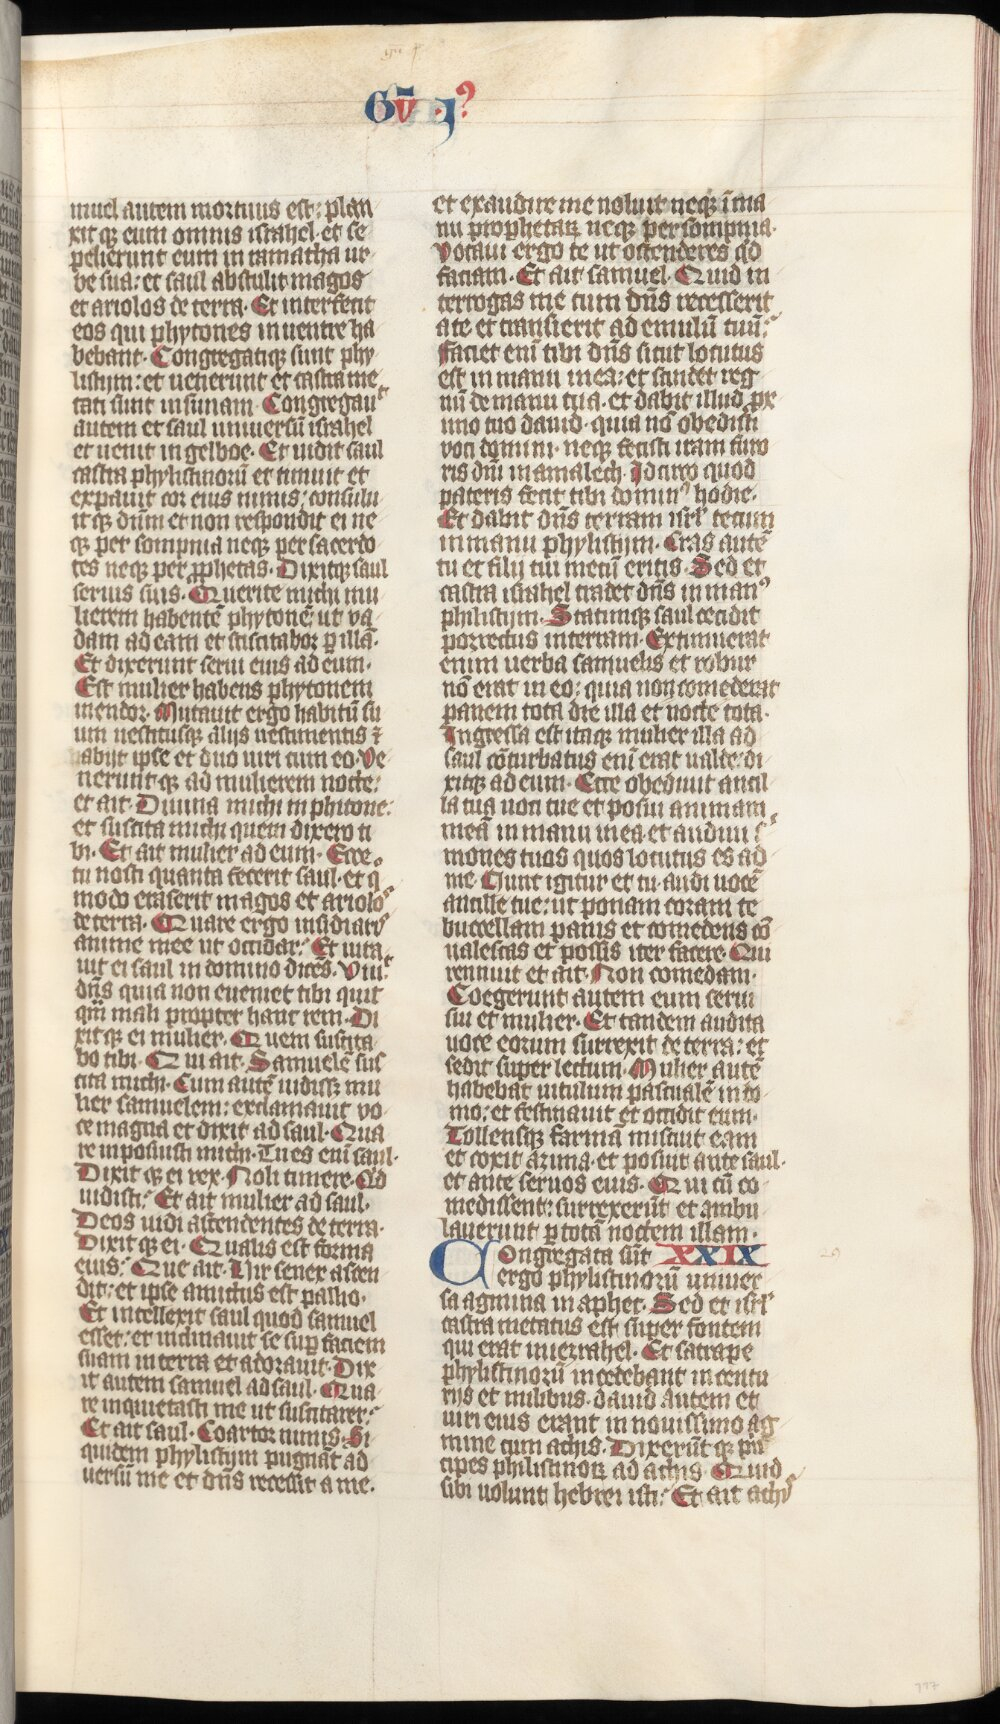 Gū · I⁹
muel autem mortuus est: plan
xit qꝫ eum omnis israhel · et se
pelierunt eum in ramatha ur
be sua: et saul abstulit magos
et ariolos de terra · Et interfecit
eos qui phytones in uentre ha
bebant · Congregatiqꝫ sunt phy
listijm: et uenerunt et castra me
tati sunt in sunam · Congregauᵗ
autem et saul uniuersū israhel
et uenit in gelboe · Et uidit saul
castra phylistinorū et timuit et
expauit cor eius nimis: consulu
it qꝫ dūm et non respondit ei ne
qꝫ per sompnia neqꝫ per sacerdo
tes neqꝫ per ꝓphetas · Dixitqꝫ saul
seruis suis · Querite michi mu
lierem habentē phytonē ut va
dam ad eam et sciscitabor ꝑ illā ·
Et dixerunt serui eius ad eum ·
Est mulier habens phytonem
in endor · Mutauit ergo habitū su
um uestitusqꝫ alijs uestimentis ⁊
abijt ipse et duo uiri cum eo · Ve
nerunt qꝫ ad mulierem nocte:
et ait · Diuina michi in phitone:
et suscita michi quem dixero ti
bi · Et ait mulier ad eum · Ecce
tu nosti quanta fecerit saul · et qᵒ
modo eraserit magos et ariolos
de terra · Quare ergo insidiaris
anime mee ut occidar: Et iura
uit ei saul in domino dicēs · Viuiᵗ
dn̄s quia non eueniet tibi quit
qm̄ mali propter hanc rem · Di
xit qꝫ ei mulier · Quem suscita
bo tibi · Qui ait · Samuelē sus
cita michi · Cum autē uidissꝫ mu
lier samuelem: exclamauit vo
ce magna et dixit ad saul · Qua
re inposuisti michi · Tu es enī saul ·
Dixit qꝫ ei rex · Noli timere · Qd
uidisti: Et ait mulier ad saul ·
Deos uidi ascendentes de terra ·
Dixit qꝫ ei · Qualis est forma
eius: Que ait · Uir senex ascen
dit: et ipse amictus est pallio ·
Et intellexit saul quod samuel
esset: et inclinauit se suꝑ faciem
suam in terra et adorauit · Dix
it autem samuel ad saul · Qua
re inquietasti me ut suscitarer:
Et ait saul · Coartor nimis · Si
quidem phylistijm pugnāt ad
uersū me et dn̄s recessit a me ·
et exaudire me noluit neqꝫ ī ma
nu prophetaꝝ neqꝫ per sompnia ·
Vocaui ergo te ut ostenderes qd
faciam · Et ait samuel · Quid in
terrogas me cum dn̄s recesserit
a te et transierit ad emulū tuū:
Faciet enī tibi dn̄s sicut locutus
est in manu mea: et scindet reg
nū de manu tua · et dabit illud ꝓx
imo tuo dauid · quia nō obedisti
voci domini · neqꝫ fecisti iram furo
ris dn̄i in amalech · Idcirco quod
pateris fecit tibi domin⁹ hodie ·
Et dabit dn̄s terram isrl̄ tecum
in manu phylistijm · Cras autē
tu et filij tui mecū eritis · Sed et
castra israhel tradet dn̄s in man⁹
philistijm · Statimqꝫ saul cecidit
porrectus in terram · Extimuerat
enim uerba samuelis et robur
nō erat in eo: quia non comederat
panem tota die illa et nocte tota ·
Ingressa est itaqꝫ mulier illa ad
saul cōturbatus enī erat ualde: di
xitqꝫ ad eum · Ecce obediuit ancil
la tua uoci tue et posui animam
meā in manu mea et audiui s̄
mones tuos quos locutus es ad
me · Nunc igitur et tu audi uocē
ancille tue: ut ponam coram te
buccellam panis et comedens cō
ualescas et possis iter facere · Qui
rennuit et ait · Non comedam ·
Coegerunt autem eum serui
sui et mulier · Et tandem audita
uoce eorum surrexit de terra: et
sedit super lectum · Mulier autē
habebat uitulum pascualē in do
mo: et festinauit et occidit eum ·
Tollensqꝫ farinā miscuit eam
et coxit azima · et posuit ante saul ·
et ante seruos euis · Qui cū co
medissent: surrexerūt et ambu
lauerunt ꝑ totā noctem illam ·
Congregata sūt XXIX
ergo phylistinorū uniuer
sa agmina in aphec · Sed et isrl̄
castra metatus est super fontem
qui erat in iezrahel · Et satrape
phylistinorū incedebant in centu
rijs et milibus · dauid autem et
uiri eius erant in nouissimo ag
mine cum achis · Dixerūt qꝫ pⁱⁿ
cipes philistinoꝝ ad achis · Quid
sibi uolunt hebrei isti: Et ait achis
117